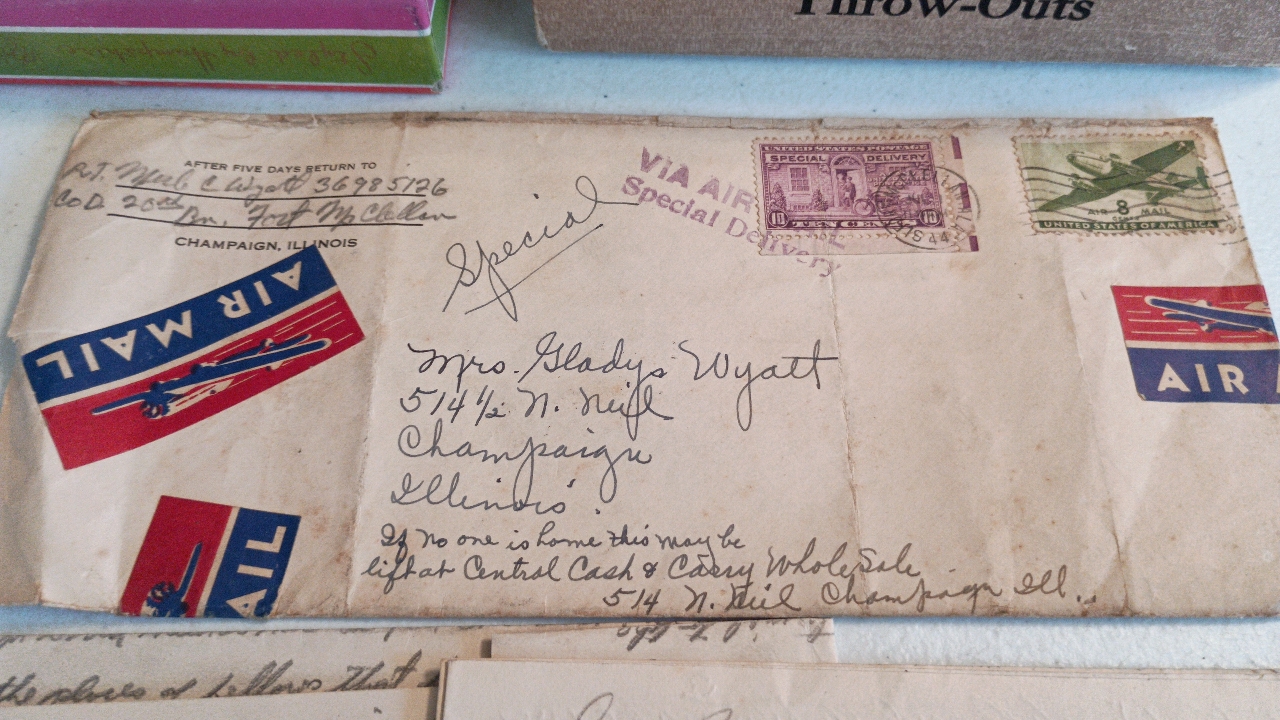 Throw-Outs
AFTER FIVE DAYS RETURN TO
Merle C Wyatt 36985126
Co D. Bn. Fort McClellan
CHAMPAIGN, ILLINOIS
VIA AIR
Special Delivery
UNITED STATES POSTAGE
SPECIAL DELIVERY
10 TEN CENTS 10
44
8
AIR MAIL
UNITED STATES OF AMERICA
Special
AIR MAIL
AIR
AIL
Mrs. Gladys Wyatt
514 1/2 N. Neil
Champaign
Illinois.
If no one is home this may be
lift at Central Cash & Carry Whole Sale
514 N. Neil Champaign Ill..
the places of fellows that